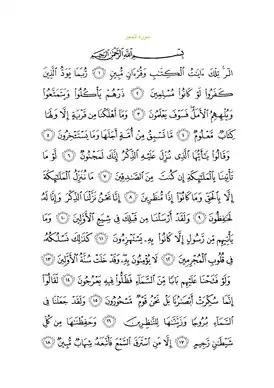 سورة الحجر
بِسْمِ اللَّهِ الرَّحْمَٰنِ الرَّحِيمِ
الٓر ۚ تِلْكَ ءَايَٰتُ ٱلْكِتَٰبِ وَقُرْءَانٍ مُّبِينٍ ١ رُّبَمَا يَوَدُّ ٱلَّذِينَ
كَفَرُوا۟ لَوْ كَانُوا۟ مُسْلِمِينَ ٢ ذَرْهُمْ يَأْكُلُوا۟ وَيَتَمَتَّعُوا۟
وَيُلْهِهِمُ ٱلْأَمَلُ ۖ فَسَوْفَ يَعْلَمُونَ ٣ وَمَآ أَهْلَكْنَا مِن قَرْيَةٍ إِلَّا وَلَهَا
كِتَابٌ مَّعْلُومٌ ٤ مَّا تَسْبِقُ مِنْ أُمَّةٍ أَجَلَهَا وَمَا يَسْتَـْٔخِرُونَ ٥
وَقَالُوا۟ يَٰٓأَيُّهَا ٱلَّذِى نُزِّلَ عَلَيْهِ ٱلذِّكْرُ إِنَّكَ لَمَجْنُونٌ ٦ لَّوْ مَا
تَأْتِينَا بِٱلْمَلَٰٓئِكَةِ إِن كُنتَ مِنَ ٱلصَّٰدِقِينَ ٧ مَا نُنَزِّلُ ٱلْمَلَٰٓئِكَةَ
إِلَّا بِٱلْحَقِّ وَمَا كَانُوٓا۟ إِذًا مُّنظَرِينَ ٨ إِنَّا نَحْنُ نَزَّلْنَا ٱلذِّكْرَ وَإِنَّا لَهُۥ
لَحَٰفِظُونَ ٩ وَلَقَدْ أَرْسَلْنَا مِن قَبْلِكَ فِى شِيَعِ ٱلْأَوَّلِينَ ١٠ وَمَا
يَأْتِيهِم مِّن رَّسُولٍ إِلَّا كَانُوا۟ بِهِۦ يَسْتَهْزِءُونَ ١١ كَذَٰلِكَ نَسْلُكُهُۥ
فِى قُلُوبِ ٱلْمُجْرِمِينَ ١٢ لَا يُؤْمِنُونَ بِهِۦ ۖ وَقَدْ خَلَتْ سُنَّةُ ٱلْأَوَّلِينَ ١٣
وَلَوْ فَتَحْنَا عَلَيْهِم بَابًا مِّنَ ٱلسَّمَآءِ فَظَلُّوا۟ فِيهِ يَعْرُجُونَ ١٤ لَقَالُوٓا۟
إِنَّمَا سُكِّرَتْ أَبْصَٰرُنَا بَلْ نَحْنُ قَوْمٌ مَّسْحُورُونَ ١٥ وَلَقَدْ جَعَلْنَا فِى
ٱلسَّمَآءِ بُرُوجًا وَزَيَّنَّٰهَا لِلنَّٰظِرِينَ ١٦ وَحَفِظْنَٰهَا مِن كُلِّ
شَيْطَٰنٍ رَّجِيمٍ ١٧ إِلَّا مَنِ ٱسْتَرَقَ ٱلسَّمْعَ فَأَتْبَعَهُۥ شِهَابٌ مُّبِينٌ ١٨